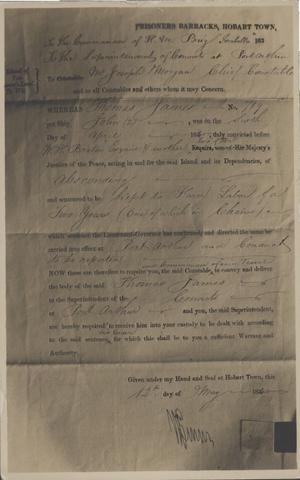 PRISONERS BARRACKS, HOBART TOWN,
To the Commander of H. M. Brig Isabella 183
To the Superintendent of Convicts at Port Arthur
To Constable Mr Joseph Morgan Chief Constable
and to all Constables and others whom it may Concern.
WHEREAS Thomas James No.
per Ship John (2) was on the Sixth
Day of April duly convicted before
Esquire, one of Her Majesty's
Justices of the Peace, acting in and for the said Island and its Dependencies, of
Absconding
and sentenced to be kept to Hard Labour for
Two Years (One of which in Chains)
which sentence the Lieutenant-Governor has confirmed and directed the same to be
carried into effect at Port Arthur and Conduct
to be reported
NOW these are therefore to require you, the said Constable, to convey and deliver
the body of the said Thomas James
to the Superintendent of the Convicts
at Port Arthur and you, the said Superintendent,
are hereby required to receive him into your custody to be dealt with according
to the said sentence, for which this shall be to you a sufficient Warrant and
Authority.
Given under my Hand and Seal at Hobart Town, this
12th day of May 184